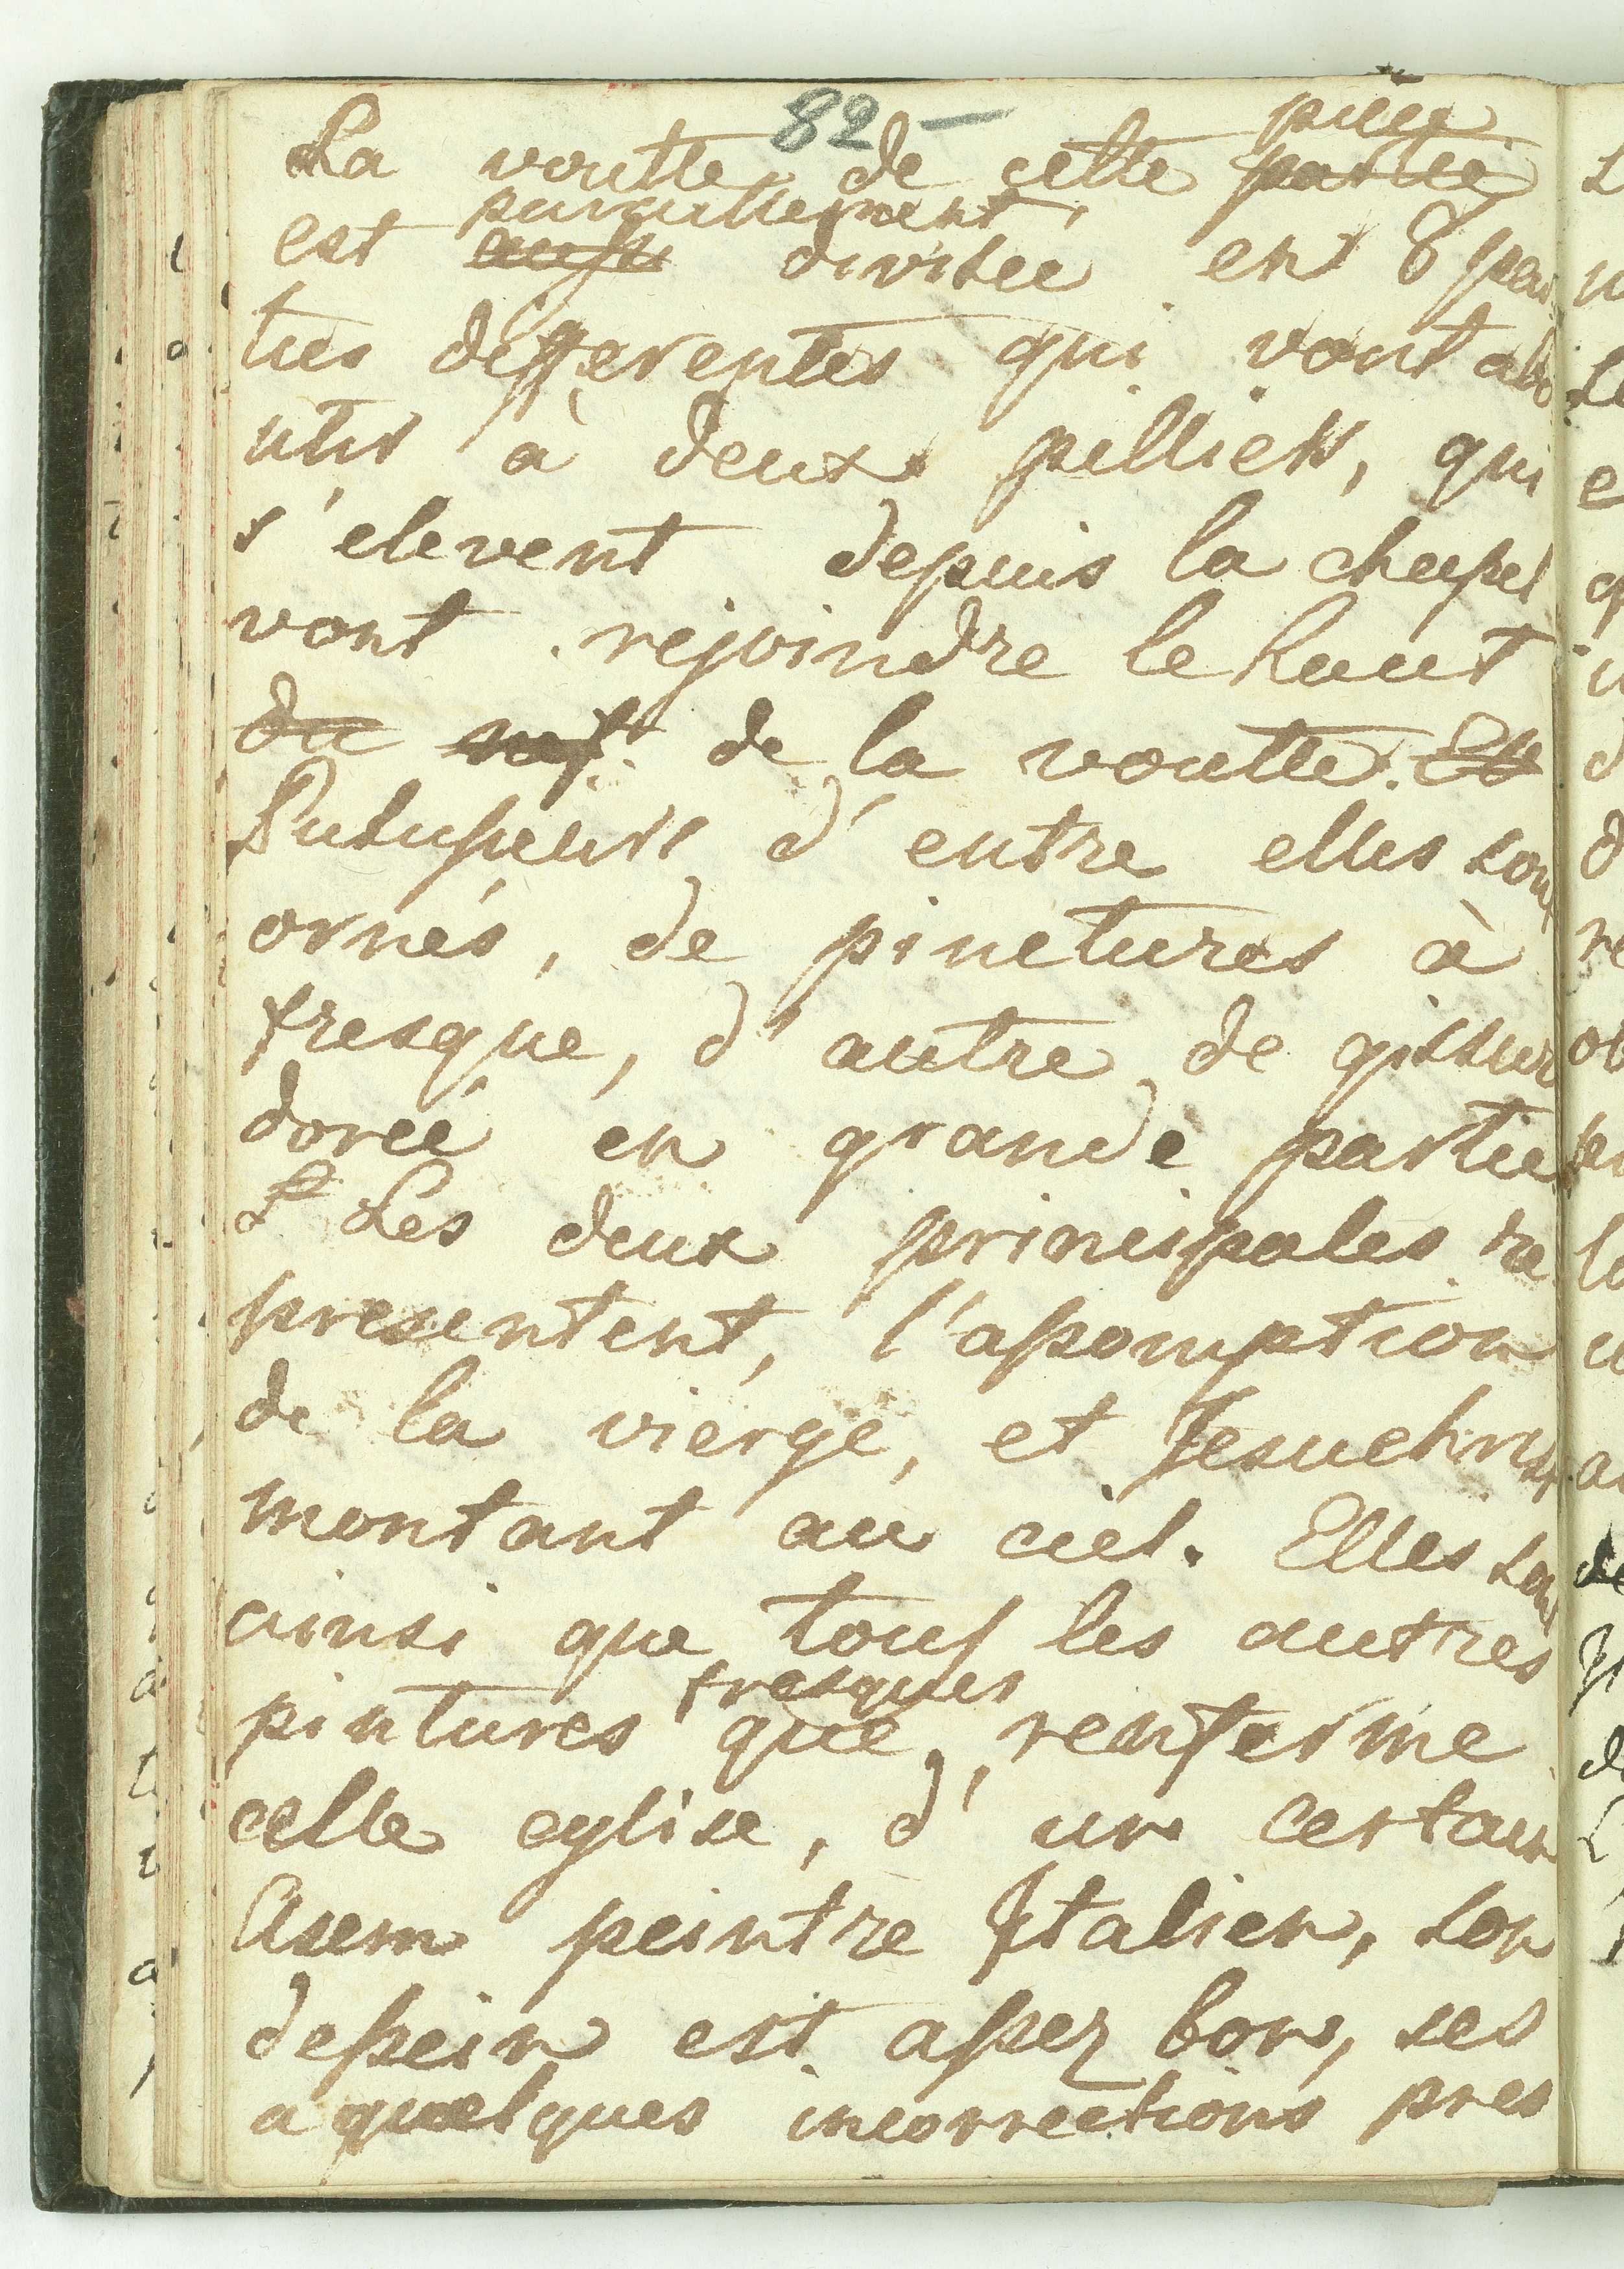 82 –
La voutte de cette ~~partie~~ piece
est ~~aussi~~ pareillement divisee en 8 par
ties differentes qui vont abo
utir à deux pilliers, qui
s'elevent depuis la chapel
vont rejoindre le haut
~~du~~ de la voutte. ~~Et~~
d'entre elles sont
ornés, de pinctures à
fresque, d'autre de gissur
doreé en grande partie
Les deux principales re
presentent, l'assomption
de la vierge, et Jesuchrist
montant au ciel. Elles sont
ainsi que tous les autres
pintures fresques que, renferme
celle eglise, d'un certain
Asem peintre Italien, son
dessein est assez bon, ses
a quelques incorrections pres